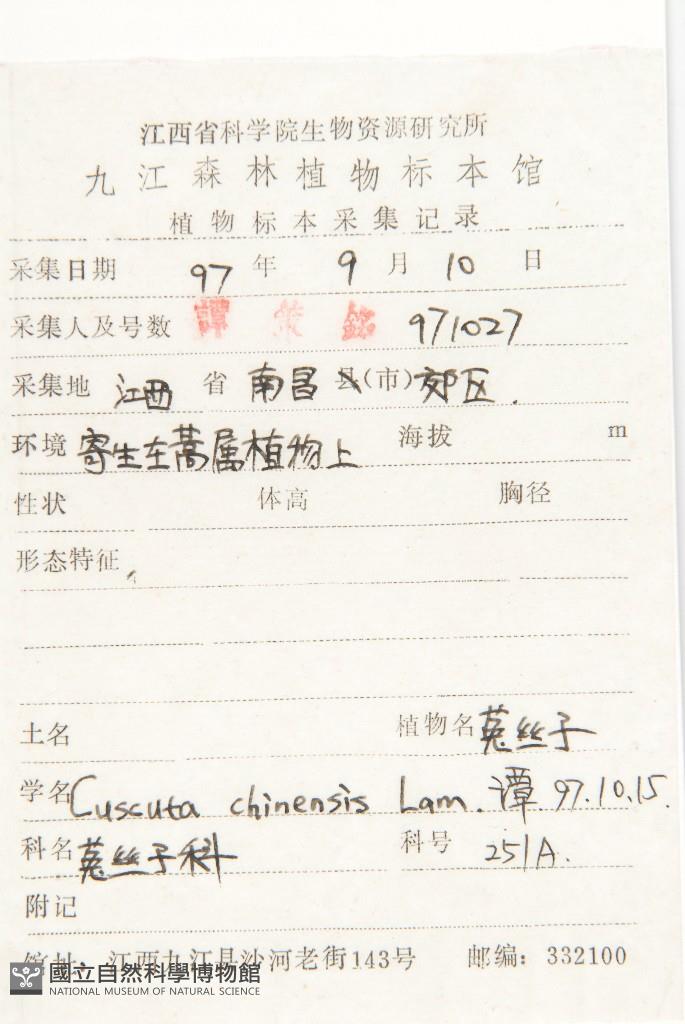 江西省科学院生物资源研究所
九江森林植物标本馆
植物标本采集记录
采集日期 97 年 9 月 10 日
采集人及号数 譚策銘 971027
采集地 江西 省 南昌 县(市) 郊区.
环境 寄生在蒿属植物上 海拔 m
性状 体高 胸径
形态特征
土名 植物名 菟丝子
学名 Cuscuta chinensis Lam. 谭 97.10.15.
科名 菟丝子科 科号 251A.
附记
馆址: 江西九江县沙河老街143号 邮编: 332100
國立自然科學博物館
NATIONAL MUSEUM OF NATURAL SCIENCE